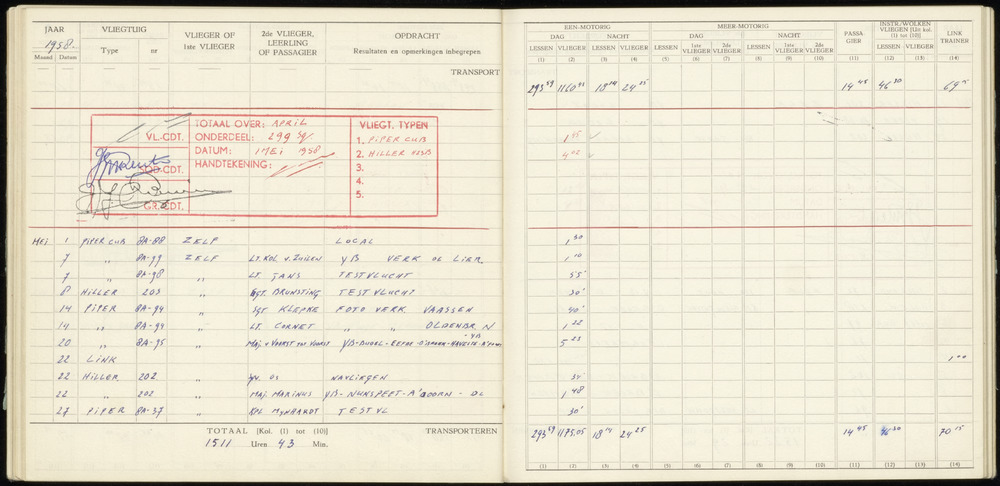 JAAR
1958.
Maand Datum
VLIEGTUIG
Type nr
VLIEGER OF
1ste VLIEGER
2de VLIEGER,
LEERLING
OF PASSAGIER
OPDRACHT
Resultaten en opmerkingen inbegrepen
TRANSPORT
TOTAAL OVER: APRIL
VL.-CDT. ONDERDEEL: 299 Sq
DATUM: 1 MEI 1958
OD-CDT. HANDTEKENING:
GR.CDT.
VLIEGT. TYPEN
1. PIPER CUB
2. HILLER H23B
3.
4.
5.
MEI 1 PIPER CUB 8A-88 ZELF LOCAL
7 " 8A-99 ZELF LT. KOL v. ZUILEN YB VERK DE LIER
7 " 8A-98 " LT. JANS TESTVLUCHT
8 HILLER 203 " Sgt. BRUNSTING TESTVLUCHT
14 PIPER 8A-94 " Sgt KLEPKE FOTO VERK VAASSEN
14 " 8A-94 " LT. CORNET " " OLDENBR N
- YB
20 " 8A-95 " MAJ. v VOORST tot VOORST YB-BUDEL-EERDE-
22 LINK
22 HILLER 202 " NAVLIEGEN
22 " 202 " MAJ. MARINUS YB-NUNSPEET-A'DOORN - DL
27 PIPER 8A-37 " KPL MYNHARDT TESTVL
TOTAAL [Kol. (1) tot (10)] TRANSPORTEREN
1511 Uren 43 Min.
EEN-MOTORIG MEER-MOTORIG
DAG NACHT DAG NACHT
LESSEN VLIEGER LESSEN VLIEGER LESSEN 1ste VLIEGER 2de VLIEGER LESSEN 1ste VLIEGER 2de VLIEGER
PASSA GIER
INSTR./WOLKEN VLIEGEN [Uit kol. (1) tot (10)]
LESSEN VLIEGER
LINK TRAINER
(1) (2) (3) (4) (5) (6) (7) (8) (9) (10) (11) (12) (13) (14)
293 59 18 14 24 25 14 45 46 30 69 15
1 45
4 02
1 30
1 10
55'
30'
40'
1 22
5 23
1 00
1 48
30'
293 59 1175.05 18 14 24 25 14 45 46 30 70 15
(1) (2) (3) (4) (5) (6) (7) (8) (9) (10) (11) (12) (13) (14)